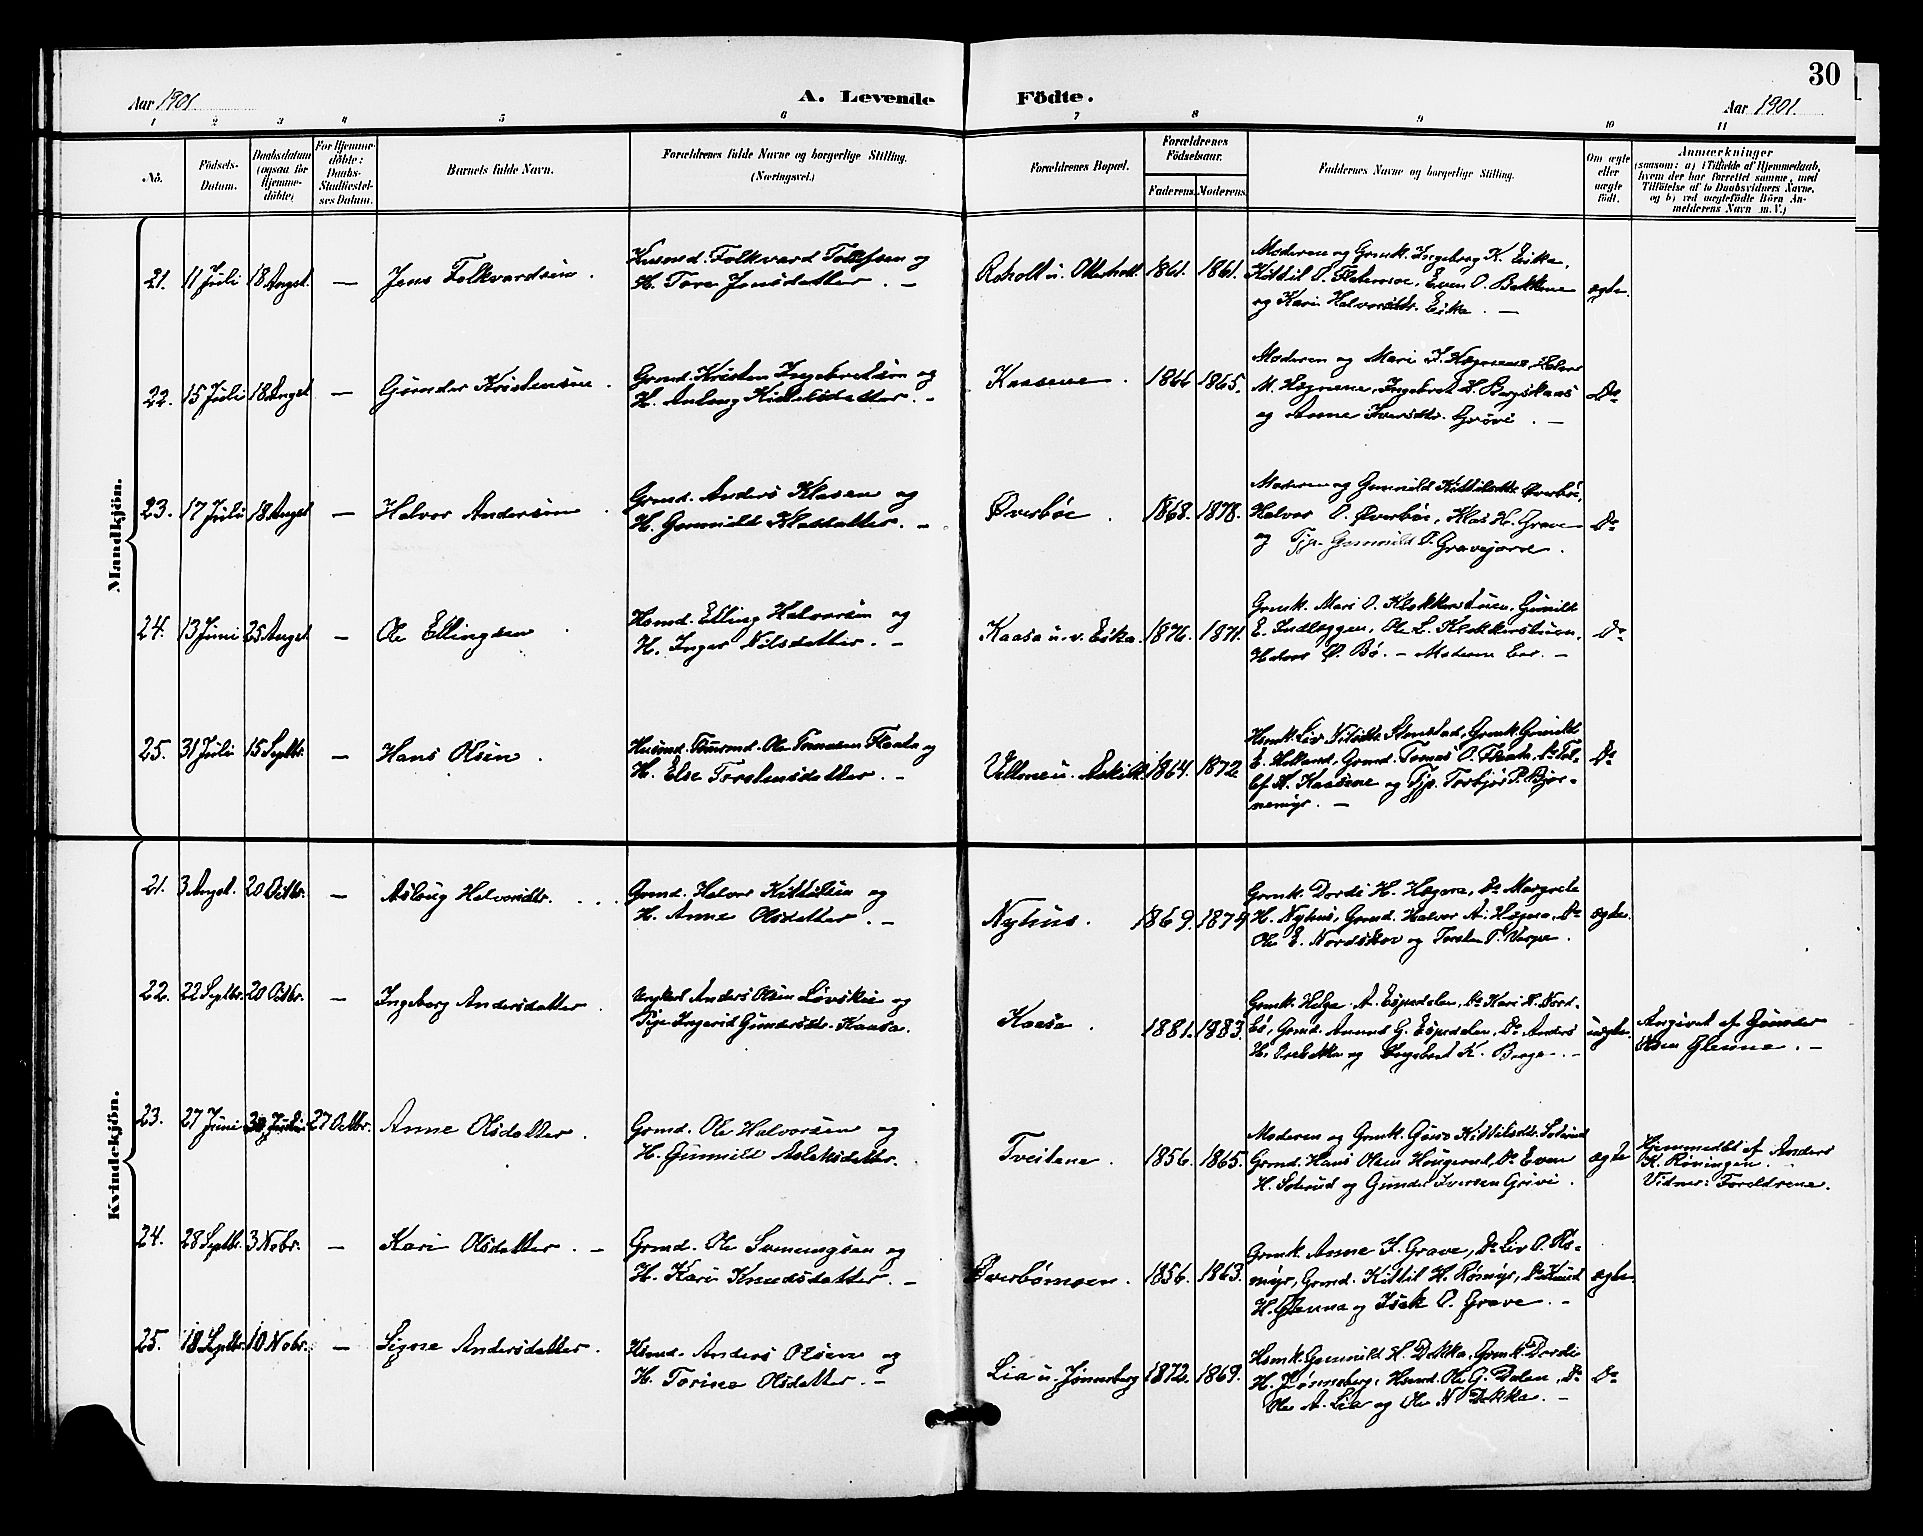 30
Aar 1901
A. Levende Födte.
Aar 1901.
1 2 3 4 5 6 7 8 9 10 11
No.
Födsels-
Datum.
Daabsdatum
(ogsaa for
Hjemme-
döbte)
For Hjemme-
döbte:
Daabs-
Stadfæstel-
ses Datum.
Barnets fulde Navn.
Forældrenes fulde Navne og borgerlige Stilling.
(Næringsvei.)
Forældrenes Bopæl.
Forældrenes
Födselsaar.
Faderens.
Moderens.
Faddernes Navne og borgerlige Stilling.
Om ægte
eller
uægte
födt.
Anmærkninger
(saasom: a) i Tilfælde af Hjemmedaab,
hvem der har forrettet samme, med
Tilföielse af to Daabsvidners Navne,
og b) ved uægtefödte Börn An-
melderens Navn m. V.)
Mandkjön.
21. 11 Juli 18 Augst — Jens Folkvardsen.
Husmd. Folkvard Tollefsen og
H. Tore Jensdatter. —
Roholt u. Otterholt 1861. 1861.
Moderen og Grmk. Ingeborg K. Eika,
Kittil O. Flatemoe, Even O. Bakkene
og Kari Halvorsdtr. Eika. —
ægte.
22. 15 Juli 18 Augst — Gunder Kristensen.
Grmd. Kristen Ingebretsen og
H. Aslaug Kittilsdatter. —
Kaasene. 1866 1865.
Moderen og Mari H. Hægnene, Halvor
M. Hægnene, Ingebret H. Bergskaas
og Anne Iversdtr. Grövi. —
Do
23. 17 Juli 18 Augst — Halvor Andersen.
Grmd. Anders Klasen og
H. Gunnild Klasdatter. —
Øverböe. 1868. 1878.
Moderen og Gunnild Kittilsdtr. Øverbö,
Halvor O. Øverböe, Klas H. Grave
og Pige Gunnild O. Gravejorde.
Do
24. 13 Juni 25 Augst — Ole Ellingsen.
Husmd. Elling Halvorsen og
H. Inger Nilsdatter. —
Kaasa u. v. Eika. 1876. 1871.
Grmk. Mari O. Klokkerstuen, Gunild
E. Indlæggen, Ole L. Klokkerstuen,
Halvor Ø. Bö. — Moderen bar. —
Do
25. 31 Juli 15 Septbr. — Hans Olsen.
Husmd. Ole Tomasen Flaata og
H. Else Torstensdatter. —
1864. 1872
Hsmk. Liv Stenstad, Grmk. Gunild
E. Helland, Grmd. Tomas O. Flaata, Do Tol-
lef H. Kaasene og Pige Torbjør P. Bjør-
nemyr. —
Do
Kvindekjön.
21. 3 Augst. 20 Octbr. — Aslaug Halvorsdtr.
Grmd. Halvor Kittilsen og
H. Anne Olsdatter. —
Nyhus. 1869. 1879
Grmk. Dordi H. Hægna, Do Margrete
H. Nyhus, Grmd. Halvor A. Hægna, Do
Ole E. Nordskov og Torsten T. Verpe.
ægte.
22. 22 Septbr. 20 Octbr. — Ingeborg Andersdatter.
Ungkarl Anders Olsen Lövskei og
Pige Ingerid Gundersdtr. Kaasa.
Kaasa. 1881. 1883.
Grmk. Helga A. Espedalen, Do Kari H. Nord-
bö, Grmd. Anund G. Espedalen, Do Anders
H. og Ingebret K. Berge. —
uægte.
Angivet af Gunder
Olsen Glenna. —
23. 27 Juni 30 Juni 27 Octbr. Anne Olsdatter.
Grmd. Ole Halvorsen og
H. Gunnild Aslaksdatter.
Tveitene. 1856. 1865.
Moderen og Grmk. Kittilsdtr. Solerud
Grmd. Hans Olsen Haugerud, Do Even
H. Solerud og Gunder Iversen Grivi.
ægte
Hjemmedbt af Anders
K. Röningen. —
Vidner: Foreldrene.
24. 28 Septbr. 3 Nobr. — Kari Olsdatter. —
Grmd. Ole Sveningsen og
H. Kari Knudsdatter. —
Øverbömoen. 1856. 1863.
Grmk. Anne I. Grave, Do Liv O. Rö-
myr, Grmd. Kittil H. Römyr, Do Knud
H. Glenna og Isak O. Grave. —
ægte
25. 18 Septbr. 10 Nobr. — Signe Andersdatter.
Husmd. Anders Olsen og
H. Torine Olsdatter. —
Lia u. Jönneberg 1872. 1869.
Hsmk. Gunnild H. Dekka, Grmk. Dordi
H. Jönneberg, Husmd. Ole G. Dalen, Do
Ole A. Lia og Ole N. Dekka. —
Do